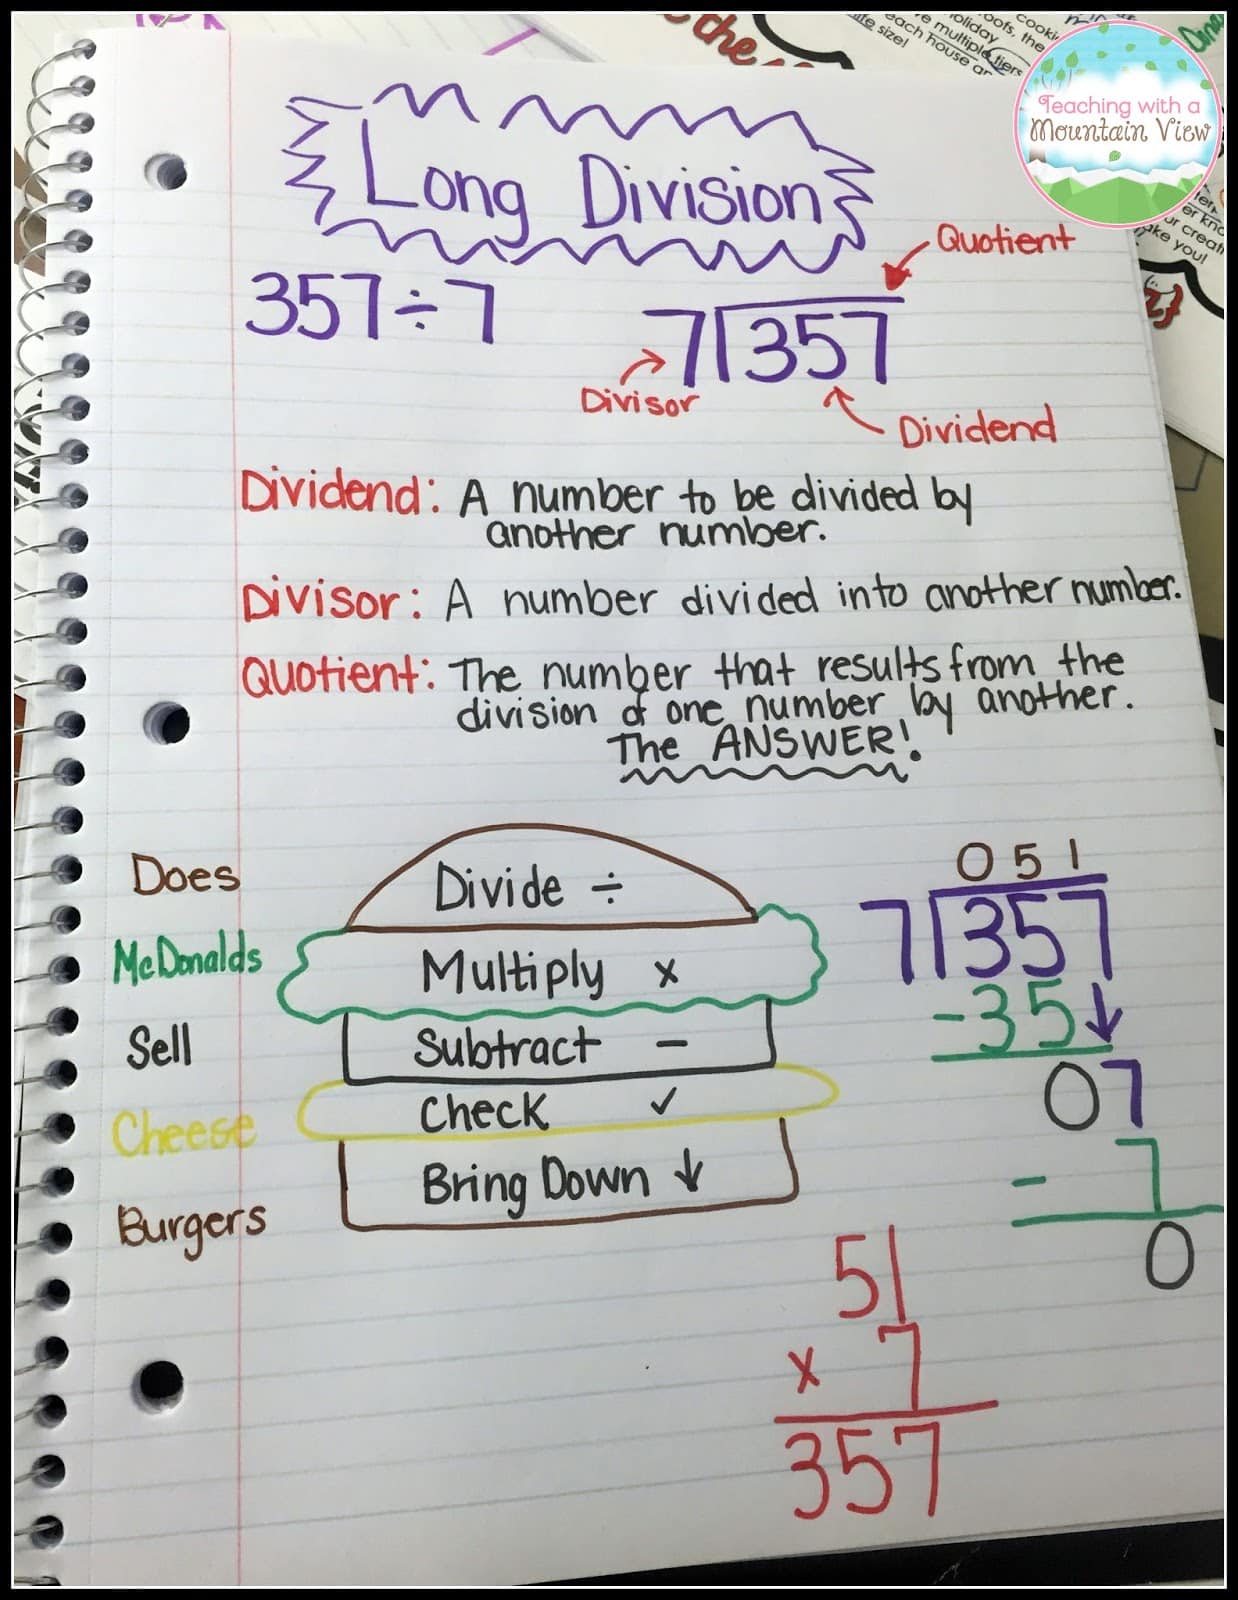 the
Teaching with a
Mountain View
Long Division
Quotient
357÷7
7 357
Divisor
Dividend
Dividend: A number to be divided by
another number.
Divisor: A number divided into another number.
Quotient: The number that results from the
division of one number by another.
The ANSWER!
Does
Divide ÷
McDonalds
Multiply x
Sell
Subtract -
Cheese
Check ✓
Burgers
Bring Down ↓
051
7 357
-35↓
07
- 7
0
51
x 7
357